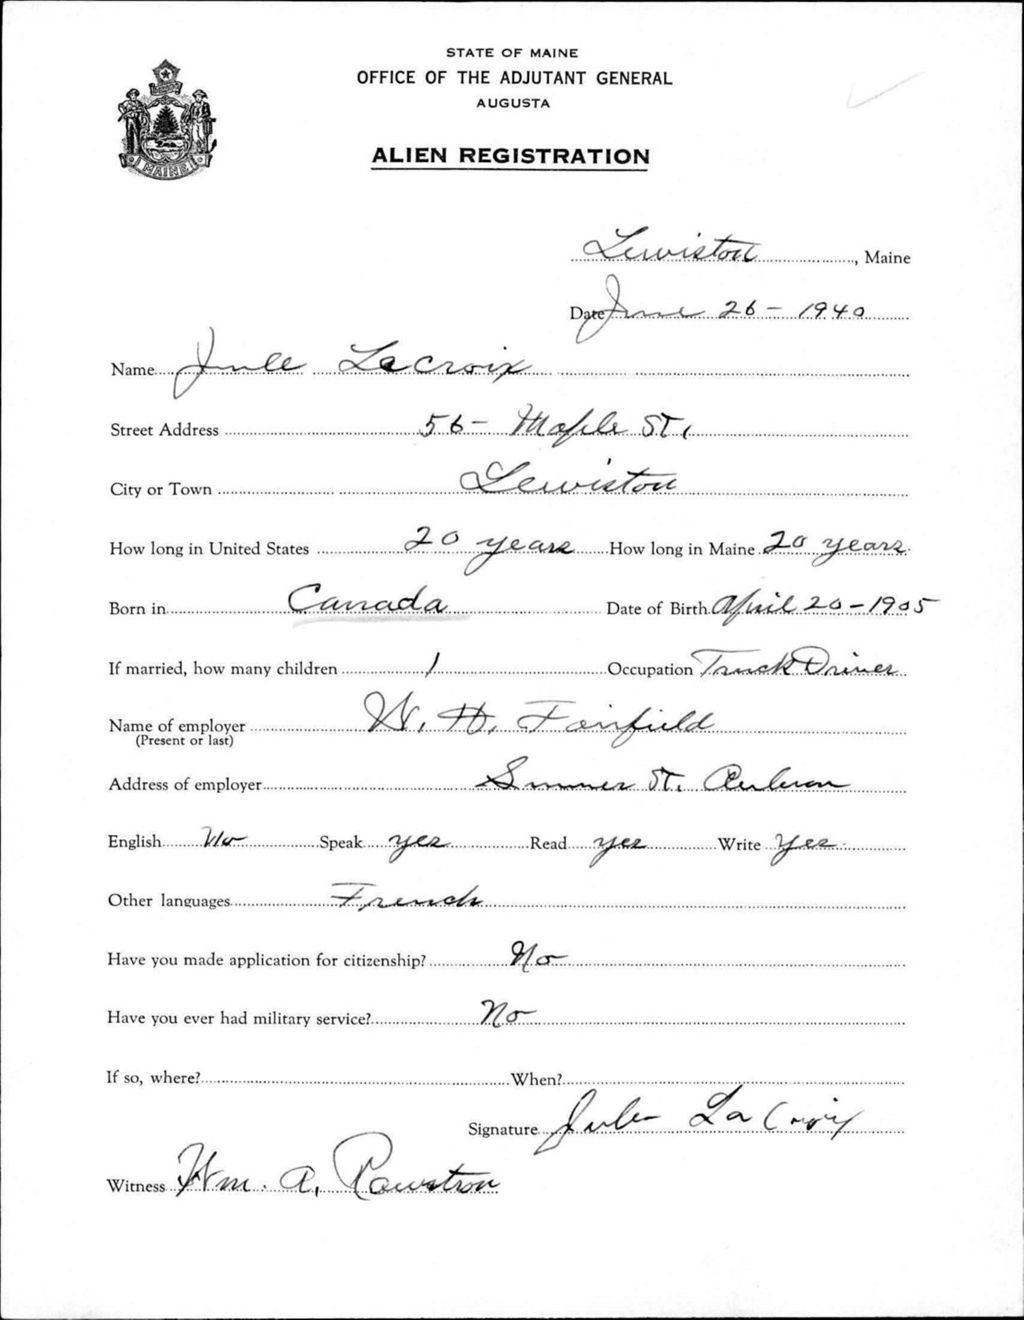 STATE OF MAINE
OFFICE OF THE ADJUTANT GENERAL
AUGUSTA
ALIEN REGISTRATION
MAINE
Lewiston, Maine
Date June 26 - 1940
Name Jule LaCroix
Street Address 56 - Maple St.
City or Town Lewiston
How long in United States 20 years How long in Maine 20 years
Born in Canada Date of Birth April 20 - 1905
If married, how many children 1 Occupation Truck Driver
Name of employer W. H. Fairfield
(Present or last)
Address of employer Summer St. Auburn
English No Speak yes Read yes Write Yes
Other languages French
Have you made application for citizenship? No
Have you ever had military service? No
If so, where? When?
Signature Jules LaCroix
Witness Wm. A. Rawstron